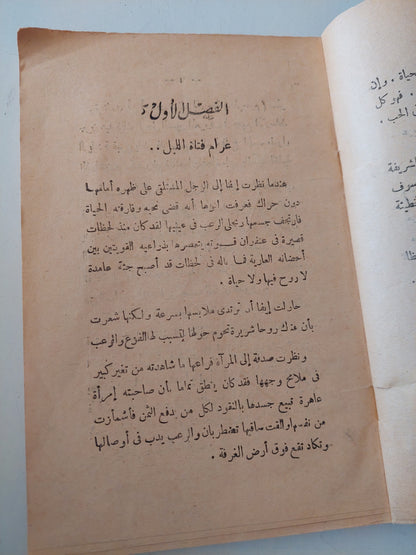 - ١ -
الفصل الأول
غرام فتاة الليل ..
عندما نظرت إيفا إلى الرجل المستلقى على ظهره أمامها
دون حراك فعرفت انها أنه قضى نحبه وفارقته الحياة
فارتجف جسمها وتجلى الرعب فى عينيها لقد كان منذ لحظات
قصيرة فى عنفوان قسوته يعتصرها بذراعيه القويتين بين
أحضانه العارية فما باله فى لحظات قد أصبح جثة هامدة
لا روح فيها ولا حياة .
حاولت إيفا أن ترتدى ملابسها بسرعة ولكنها شعرت
بأن هناك روحا شريرة تحوم حولها لتسبب لها الفزع والرعب
ونظرت صدفة إلى المرآة فراعها ما شاهدته من تغير كبير
فى ملامح وجهها فقد كان ينطق تماما بأن صاحبته إمرأة
عاهرة تبيع جسدها بالنقود لكل من يدفع الثمن فأشمأزت
من نفسها والفت ساقيها تضطربان والرعب يدب فى أوصالها
وتكاد تقع فوق أرض الغرفة .
حياة . وإن
. فهو كل
ن الحب .
لشريفة
سوف